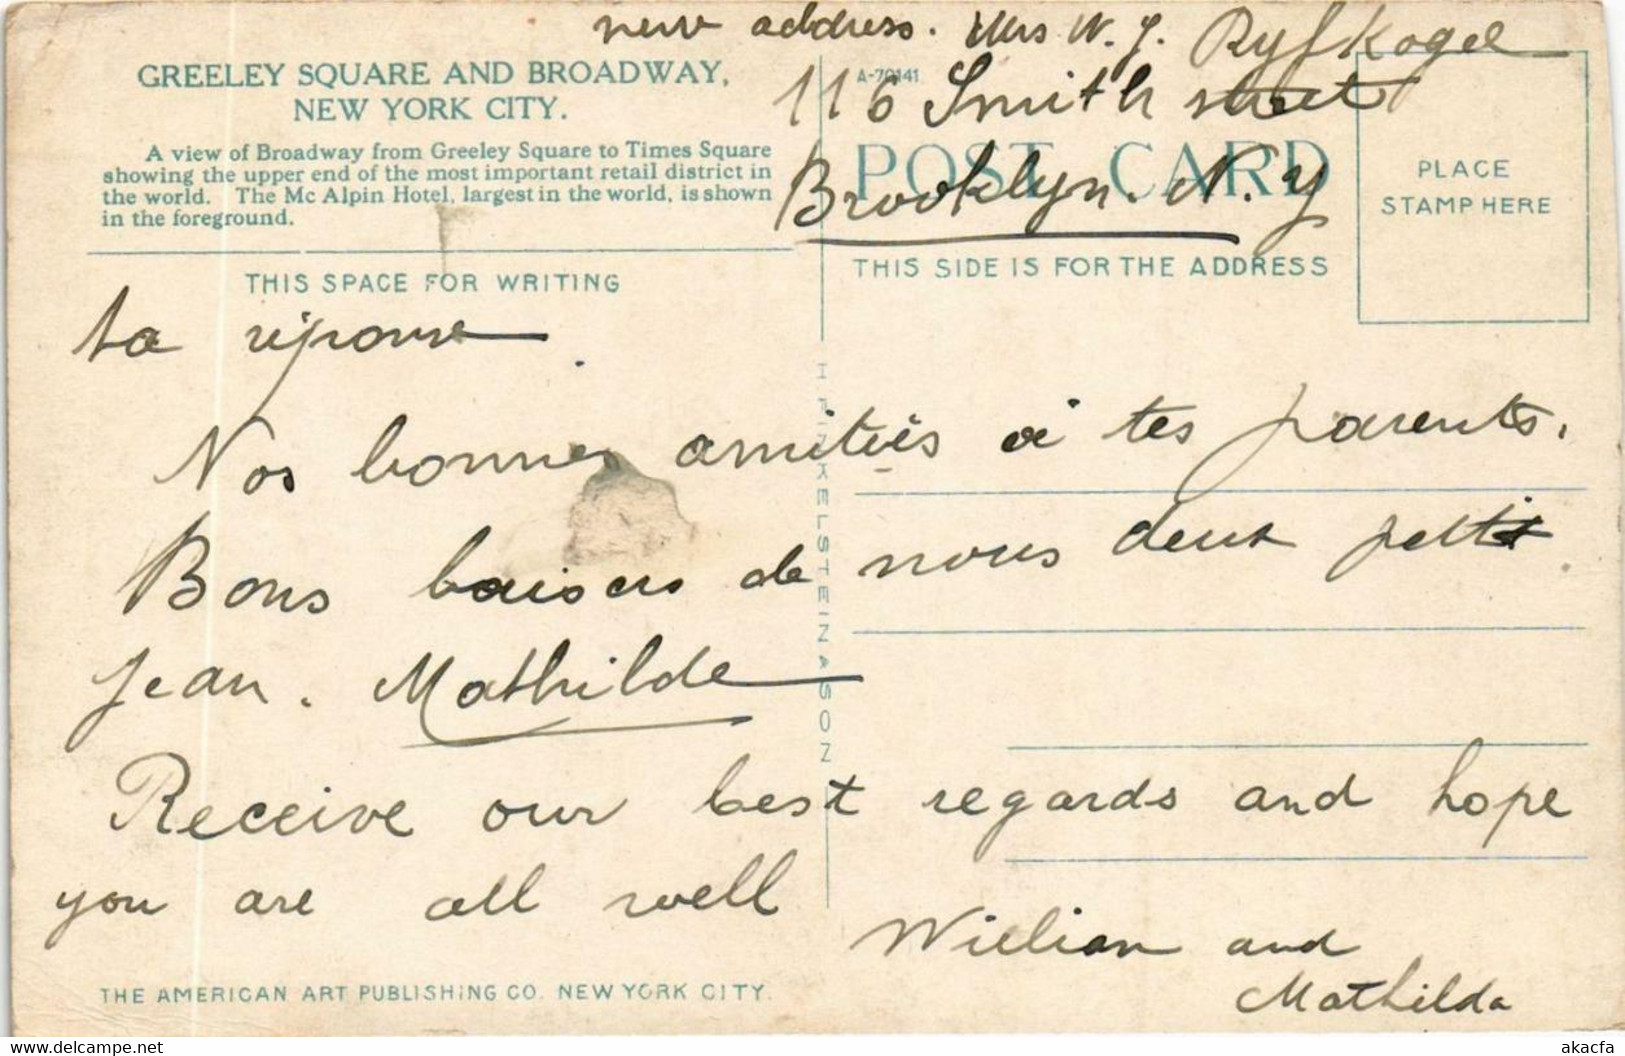 new address. Mrs W. J. Ryfkogel
116 Smith street
Brooklyn. N. Y
GREELEY SQUARE AND BROADWAY,
NEW YORK CITY.
A view of Broadway from Greeley Square to Times Square
showing the upper end of the most important retail district in
the world. The Mc Alpin Hotel, largest in the world, is shown
in the foreground.
A-70141
POST CARD
PLACE
STAMP HERE
THIS SPACE FOR WRITING
THIS SIDE IS FOR THE ADDRESS
ta réponse
Nos bonnes amitiés à tes parents.
Bons baisers de nous deux petit
Jean. Mathilde
Receive our best regards and hope
you are all well
William and
Mathilda
H. FINKELSTEIN & SON
THE AMERICAN ART PUBLISHING CO. NEW YORK CITY.
akacfa